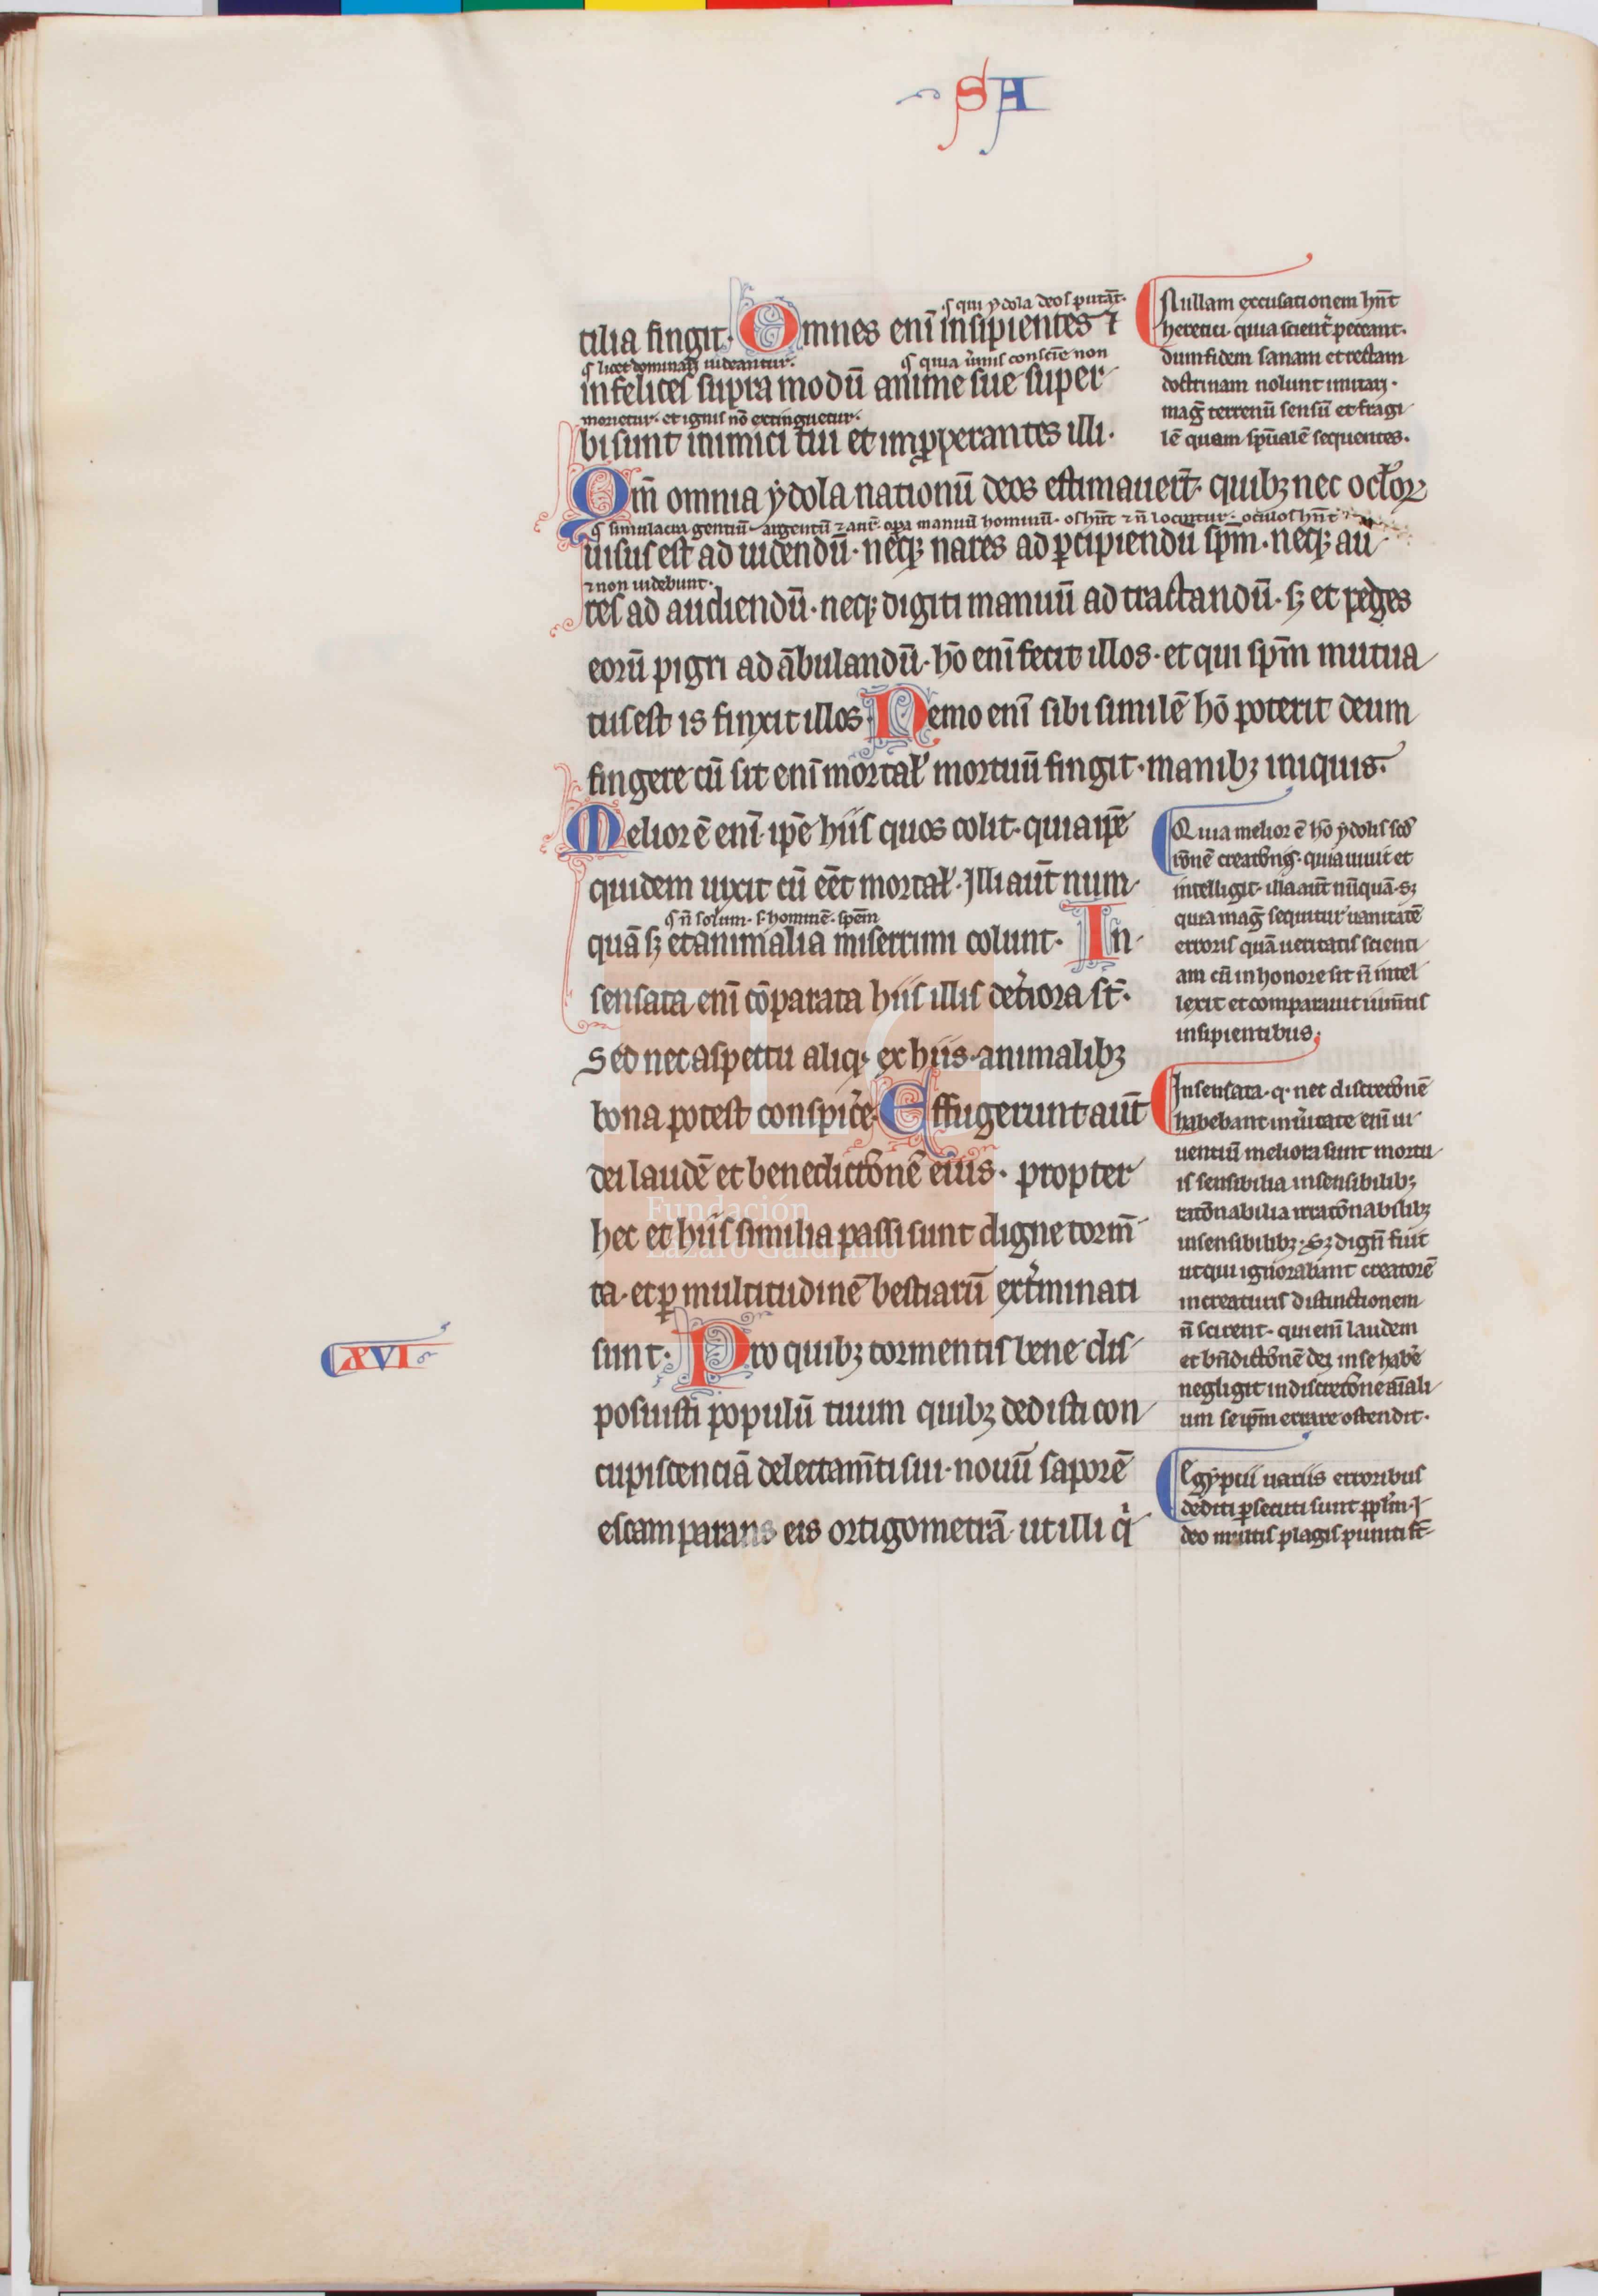 SA
.s qui ydola deos putāt.
tilia fingit. Omnes enī insipientes ⁊
.s. licet dominari uideantur. .s. quia u̾mis consciē̄ non
infelices supra modū anime sue super
morietur. et ignis nō extinguetur.
bi sunt inimici tui et imꝓꝑerantes illi.
Qm̄ omnia ydola nationū deos estimauer̄t. quibꝫ nec oclo̾ꝝ
.s. simulacra gentiū argentū ⁊ aur̄. opa manuū hominū. os hn̄t ⁊ n̄ locuntur. oculos hn̄t
uisus est ad uidendū. neqꝫ nares ad ꝑcipiendū sp̄m. neqꝫ au
⁊ non uidebunt.
res ad audiendū. neqꝫ digiti manuū ad tractandū. sꝫ et pedes
eorū pigri ad ābulandū. hō enī fecit illos. et qui sp̄m mutua
tus est is finxit illos. Nemo enī sibi similē hō poterit deum
fingere cū sit enī mortal̾ mortuū fingit. manibꝫ iniquis.
Melior ē enī ip̄e hiis quos colit. quia ip̄e
quidem uixit cū eēt mortal̾. Illi aūt num
.s. n̄ solum. s. hominē. spēm
quā sꝫ et animalia miserrimi colunt. In
sensata enī cōparata hiis illis det̾iora st̄.
Sed nec aspectu aliqͥs ex hiis animalibꝫ
bona potest conspic̾e. Effugerunt aūt
dei laudē et benedictōnē eius. propter
hec et hiis similia passi sunt digne torm̄
ta. et ꝑ multitudinē bestiarū ext̾minati
sunt. Pro quibꝫ tormentis bene dis
posuisti populū tuum quibꝫ dedisti con
cupiscenciā delectam̄ti sui. nouū saporē
escam parans eis ortigometrā ut illi qͥ
XVI
Nullam excusationem hn̄t
heretici. quia scient̾ peccant.
dum fidem sanam et rectam
doctrinam nolunt imitari.
mag̾ terrenū sensū et fragi
lē quam sp̄ualē sequentes.
Quia melior ē hō ydolis scd̾
rōnē creatōnis. quia uiuit et
intelligit. illa aūt nū̄quā. sꝫ
quia mag̾ sequitur uanitatē
erroris quā ueritatis scienti
am cū in honore sit n̄ intel
lexit et comparauit iūm̄tis
insipientibus.
Insensata. q. nec discretōnē
habebant in u̾itate enī ui
uentiū meliora sunt mortu
is sensibilia insensibilibꝫ
ratōnabilia irratōnabilibꝫ
insensibilibꝫ. Sꝫ dignū fuit
ut qui ignorabant creatorē
in creaturis distinctionem
n̄ scirent. qui enī laudem
et bn̄dictōnē dei in se hab̾e
negligit in discretōne aīali
um se ip̄m errare ostendit.
Egyptii uariis erroribus
dediti ꝑsecuti sunt ppl̄m. I
deo multis plagis puniti st̄
Fundación
Lázaro Galdiano